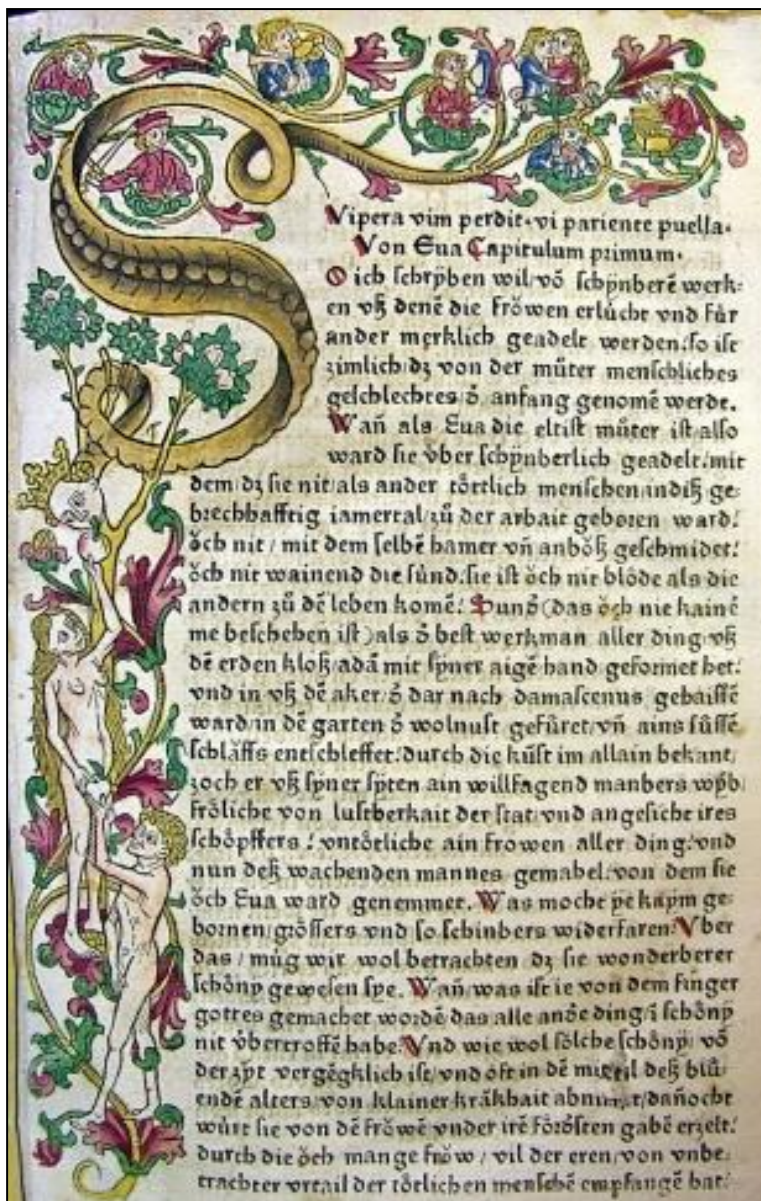 Vipera vim perdit. vi pariente puella.
Von Eua Capitulum primum.
O ich schrÿben wil/ vō schÿnberē werk-
en vß denē die frŏwen erlücht vnd für
ander merklich geadelt werden. so ist
zimlich/ dz von der můter menschliches
geschlechtes/ ð anfang genomē werde.
Wañ als Eua die eltist můter ist/ also
ward sie v̊ber schÿnberlich geadelt. mit
dem/ dz sie nit/ als ander tŏtlich menschen/ in diß ge-
brechhafftig iamertal/ zů der arbait geboren ward.
ŏch nit/ mit dem selbē hamer vñ anbŏß geschmidet.
ŏch nit wainend die sünd. sie ist ŏch nit blŏde als die
andern zů dē leben komē. Sunð (das ŏch nie kainē
me beschehen ist) als ð best werkman aller ding/ vß
dē erden kloß/ adā mit sÿner aigē hand geformet het.
vnd in vß dē aker/ ð dar nach damascenus gehaissē
ward/ in dē garten ð wolnust gefüret/ vñ ains süssē
schlăffs entschleffet. durch die kůst im allain bekant/
zoch er vß sÿner sÿten ain willsagend manbers wÿb/
frŏliche von lustberkait der stat/ vnd angesicht ires
schŏpffers. vntŏtliche ain frowen aller ding. vnd
nun deß wachenden mannes gemahel. von dem sie
ŏch Eua ward genemmet. Was mocht ÿe kaÿm ge-
bornen/ grŏssers vnd so schinbers widerfaren. Vber
das/ müg wir wol betrachten dz sie wonderberer
schŏnÿ gewesen sÿe. Wañ/ was ist ie von dem finger
gottes gemachet wordē das alle anðe ding/ ī schŏnÿ
nit v̊bertroffē habe. Vnd wie wol sŏlche schŏnÿ/ vō
der zÿt vergēgklich ist/ vnd oft in dē mittil deß blü-
endē alters/ von klainer krākhait abnimt/ dañocht
würt sie von dē frŏwē vnder irē fŏrŏsten gabē erzelt.
durch die ŏch mange frŏw/ vil der eren/ von vnbe-
trachter vrtail der tŏtlichen menschē empfangē hat.